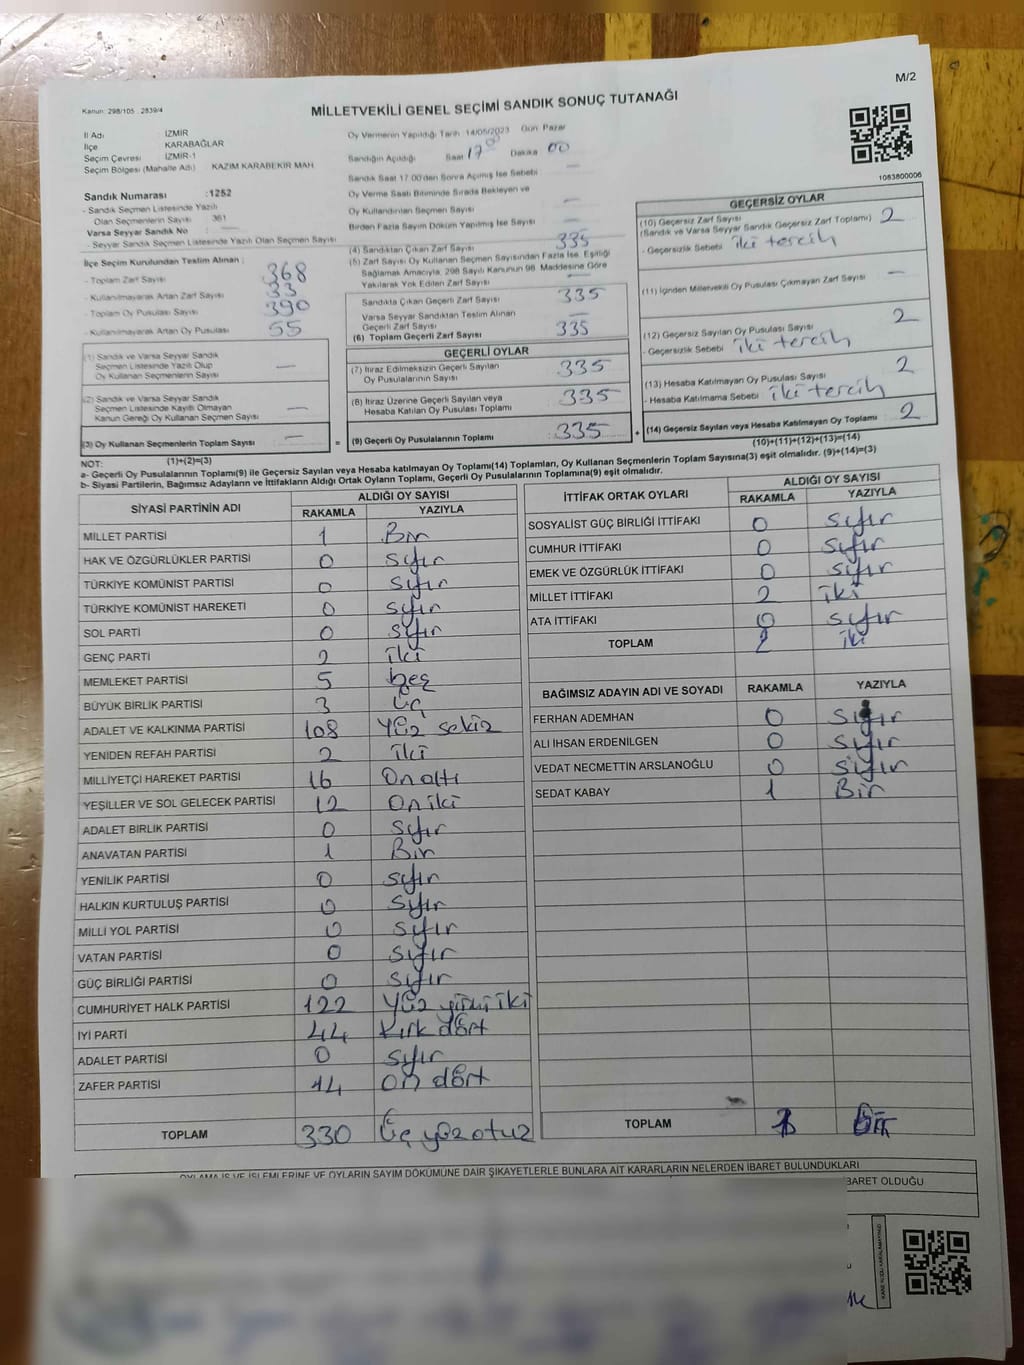 M/2
Kanun: 298/105 . 2839/4
MİLLETVEKİLİ GENEL SEÇİMİ SANDIK SONUÇ TUTANAĞI
1083800006
İl Adı : İZMİR
İlçe : KARABAĞLAR
Seçim Çevresi : İZMİR-1
Seçim Bölgesi (Mahalle Adı) : KAZIM KARABEKİR MAH.
Sandık Numarası :1252
- Sandık Seçmen Listesinde Yazılı
Olan Seçmenlerin Sayısı : 361
Varsa Seyyar Sandık No : —
- Seyyar Sandık Seçmen Listesinde Yazılı Olan Seçmen Sayısı
Oy Vermenin Yapıldığı Tarih :14/05/2023 Gün: Pazar
Sandığın Açıldığı Saat 17 00 Dakika 00
Sandık Saat 17:00'den Sonra Açılmış İse Sebebi —
Oy Verme Saati Bitiminde Sırada Bekleyen ve
Oy Kullandırılan Seçmen Sayısı : —
Birden Fazla Sayım Döküm Yapılmış İse Sayısı : —
İlçe Seçim Kurulundan Teslim Alınan :
- Toplam Zarf Sayısı : 368
- Kullanılmayarak Artan Zarf Sayısı : 33
- Toplam Oy Pusulası Sayısı : 390
- Kullanılmayarak Artan Oy Pusulası : 55
(1) Sandık ve Varsa Seyyar Sandık
Seçmen Listesinde Yazılı Olup
Oy Kullanan Seçmenlerin Sayısı : —
(2) Sandık ve Varsa Seyyar Sandık
Seçmen Listesinde Kayıtlı Olmayan
Kanun Gereği Oy Kullanan Seçmen Sayısı : —
(3) Oy Kullanan Seçmenlerin Toplam Sayısı : —
(1)+(2)=(3)
(4) Sandıktan Çıkan Zarf Sayısı : 335
(5) Zarf Sayısı Oy Kullanan Seçmen Sayısından Fazla İse, Eşitliği
Sağlamak Amacıyla, 298 Sayılı Kanunun 98. Maddesine Göre
Yakılarak Yok Edilen Zarf Sayısı : —
Sandıkta Çıkan Geçerli Zarf Sayısı : 335
Varsa Seyyar Sandıktan Teslim Alınan
Geçerli Zarf Sayısı : —
(6) Toplam Geçerli Zarf Sayısı : 335
GEÇERLİ OYLAR
(7) İtiraz Edilmeksizin Geçerli Sayılan
Oy Pusulalarının Sayısı : 335
(8) İtiraz Üzerine Geçerli Sayılan veya
Hesaba Katılan Oy Pusulası Toplamı : 335
= (9) Geçerli Oy Pusulalarının Toplamı : 335 +
GEÇERSİZ OYLAR
(10) Geçersiz Zarf Sayısı : 2
(Sandık ve Varsa Seyyar Sandık Geçersiz Zarf Toplamı)
- Geçersizlik Sebebi : iki tercih
(11) İçinden Milletvekili Oy Pusulası Çıkmayan Zarf Sayısı : —
(12) Geçersiz Sayılan Oy Pusulası Sayısı : 2
- Geçersizlik Sebebi : iki tercih
(13) Hesaba Katılmayan Oy Pusulası Sayısı : 2
- Hesaba Katılmama Sebebi : iki tercih
(14) Geçersiz Sayılan veya Hesaba Katılmayan Oy Toplamı : 2
(10)+(11)+(12)+(13)=(14)
NOT:
a- Geçerli Oy Pusulalarının Toplamı(9) ile Geçersiz Sayılan veya Hesaba katılmayan Oy Toplamı(14) Toplamları, Oy Kullanan Seçmenlerin Toplam Sayısına(3) eşit olmalıdır. (9)+(14)=(3)
b- Siyasi Partilerin, Bağımsız Adayların ve İttifakların Aldığı Ortak Oyların Toplamı, Geçerli Oy Pusulalarının Toplamına(9) eşit olmalıdır.
SİYASİ PARTİNİN ADI ALDIĞI OY SAYISI
RAKAMLA YAZIYLA
MİLLET PARTİSİ 1 Bir
HAK VE ÖZGÜRLÜKLER PARTİSİ 0 sıfır
TÜRKİYE KOMÜNİST PARTİSİ 0 sıfır
TÜRKİYE KOMÜNİST HAREKETİ 0 sıfır
SOL PARTİ 0 sıfır
GENÇ PARTİ 2 iki
MEMLEKET PARTİSİ 5 beş
BÜYÜK BİRLİK PARTİSİ 3 üç
ADALET VE KALKINMA PARTİSİ 108 Yüz sekiz
YENİDEN REFAH PARTİSİ 2 iki
MİLLİYETÇİ HAREKET PARTİSİ 16 On altı
YEŞİLLER VE SOL GELECEK PARTİSİ 12 On iki
ADALET BİRLİK PARTİSİ 0 sıfır
ANAVATAN PARTİSİ 1 Bir
YENİLİK PARTİSİ 0 sıfır
HALKIN KURTULUŞ PARTİSİ 0 sıfır
MİLLİ YOL PARTİSİ 0 sıfır
VATAN PARTİSİ 0 sıfır
GÜÇ BİRLİĞİ PARTİSİ 0 sıfır
CUMHURİYET HALK PARTİSİ 122 Yüz yirmi iki
İYİ PARTİ 44 Kırk dört
ADALET PARTİSİ 0 sıfır
ZAFER PARTİSİ 14 on dört
TOPLAM 330 Üç yüz otuz
İTTİFAK ORTAK OYLARI ALDIĞI OY SAYISI
RAKAMLA YAZIYLA
SOSYALİST GÜÇ BİRLİĞİ İTTİFAKI 0 sıfır
CUMHUR İTTİFAKI 0 sıfır
EMEK VE ÖZGÜRLÜK İTTİFAKI 0 sıfır
MİLLET İTTİFAKI 2 iki
ATA İTTİFAKI 0 sıfır
TOPLAM 2 iki
BAĞIMSIZ ADAYIN ADI VE SOYADI RAKAMLA YAZIYLA
FERHAN ADEMHAN 0 sıfır
ALİ İHSAN ERDENİLGEN 0 sıfır
VEDAT NECMETTİN ARSLANOĞLU 0 sıfır
SEDAT KABAY 1 Bir
TOPLAM 1 Bir
OYLAMA İŞ VE İŞLEMLERİNE VE OYLARIN SAYIM DÖKÜMÜNE DAİR ŞİKAYETLERLE BUNLARA AİT KARARLARIN NELERDEN İBARET BULUNDUKLARI
BARET OLDUĞU